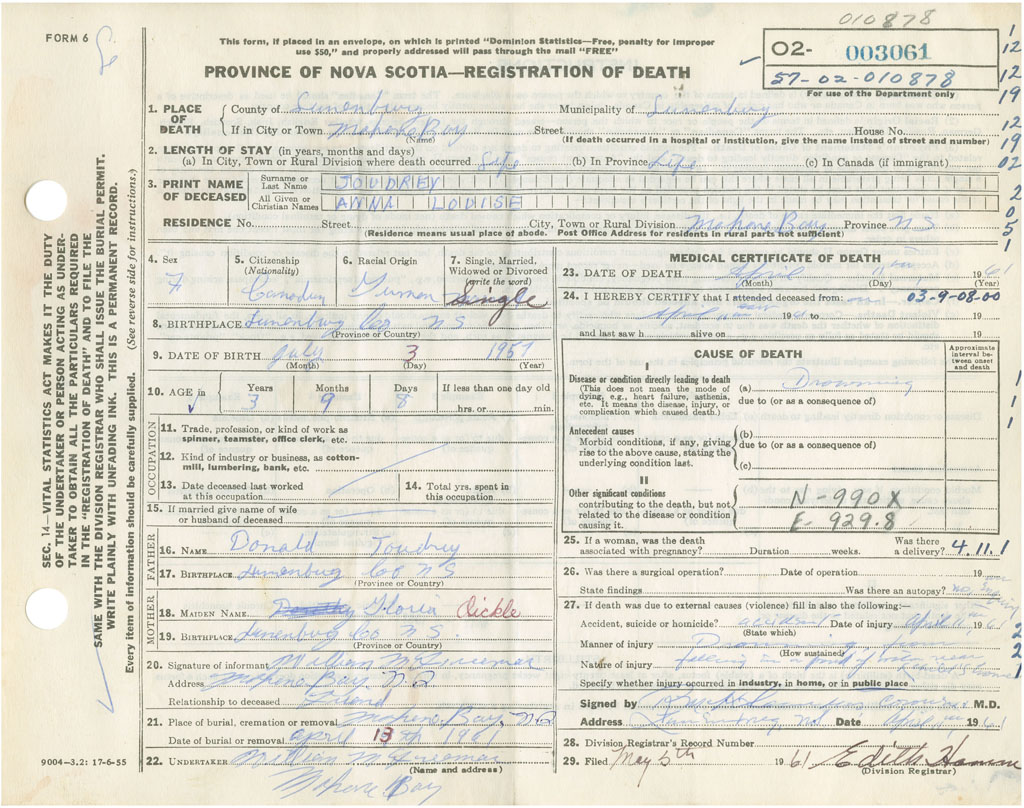 010878
FORM 6
This form, if placed in an envelope, on which is printed "Dominion Statistics—Free, penalty for improper
use $50," and properly addressed will pass through the mail "FREE"
02- 003061
57-02-010878
For use of the Department only
PROVINCE OF NOVA SCOTIA—REGISTRATION OF DEATH
1. PLACE OF DEATH
County of Lunenburg Municipality of Lunenburg
If in City or Town Mahone Bay Street House No.
(Name) (If death occurred in a hospital or institution, give the name instead of street and number)
2. LENGTH OF STAY (in years, months and days)
(a) In City, Town or Rural Division where death occurred Life (b) In Province Life (c) In Canada (if immigrant)
3. PRINT NAME OF DECEASED
Surname or Last Name JOUDREY
All Given or Christian Names ANNA LOUISE
RESIDENCE No. Street City, Town or Rural Division Mahone Bay Province NS
(Residence means usual place of abode. Post Office Address for residents in rural parts not sufficient)
4. Sex F
5. Citizenship (Nationality) Canadian
6. Racial Origin
7. Single, Married, Widowed or Divorced (write the word) Single
8. BIRTHPLACE Lunenburg Co NS
(Province or Country)
9. DATE OF BIRTH July 3 1957
(Month) (Day) (Year)
10. AGE in Years 3 Months 9 Days 8 If less than one day old hrs. or min.
OCCUPATION
11. Trade, profession, or kind of work as
spinner, teamster, office clerk, etc.
12. Kind of industry or business, as cotton-
mill, lumbering, bank, etc.
13. Date deceased last worked
at this occupation
14. Total yrs. spent in
this occupation
15. If married give name of wife
or husband of deceased
FATHER
16. NAME Donald Joudrey
17. BIRTHPLACE Lunenburg Co NS
(Province or Country)
MOTHER
18. MAIDEN NAME Gloria Dickle
19. BIRTHPLACE Lunenburg Co NS.
(Province or Country)
20. Signature of informant William
Address Mahone Bay N.S.
Relationship to deceased Friend
21. Place of burial, cremation or removal Mahone Bay, N.S.
Date of burial or removal April 13th 1961
22. UNDERTAKER William
(Name and address)
Mahone Bay
9004—3.2: 17-6-55
SEC. 14—VITAL STATISTICS ACT MAKES IT THE DUTY
OF THE UNDERTAKER OR PERSON ACTING AS UNDER-
TAKER TO OBTAIN ALL THE PARTICULARS REQUIRED
IN THE "REGISTRATION OF DEATH" AND TO FILE THE
SAME WITH THE DIVISION REGISTRAR WHO SHALL ISSUE THE BURIAL PERMIT.
WRITE PLAINLY WITH UNFADING INK. THIS IS A PERMANENT RECORD.
Every item of information should be carefully supplied. (See reverse side for instructions.)
MEDICAL CERTIFICATE OF DEATH
23. DATE OF DEATH April 11 1961
(Month) (Day) (Year)
24. I HEREBY CERTIFY that I attended deceased from: 03-9-08-00
April 19 to 19
and last saw h alive on 19
CAUSE OF DEATH
Approximate interval between onset and death
I
Disease or condition directly leading to death
(This does not mean the mode of
dying, e.g., heart failure, asthenia,
etc. It means the disease, injury, or
complication which caused death.)
(a) Drowning
due to (or as a consequence of)
Antecedent causes
Morbid conditions, if any, giving
rise to the above cause, stating the
underlying condition last.
(b)
due to (or as a consequence of)
(c)
II
Other significant conditions
contributing to the death, but not
related to the disease or condition
causing it.
N-990X
E-929.8
25. If a woman, was the death
associated with pregnancy? Duration weeks. Was there a delivery? 4.11.1
26. Was there a surgical operation? Date of operation 19
State findings Was there an autopsy? no
27. If death was due to external causes (violence) fill in also the following:—
Accident, suicide or homicide? accident Date of injury April 11 1961
(State which)
Manner of injury Drowning
(How sustained)
Nature of injury falling in a pool of
Specify whether injury occurred in industry, in home, or in public place
Signed by M.D.
Address Date April 1961
28. Division Registrar's Record Number
29. Filed May 5th 1961
(Division Registrar)